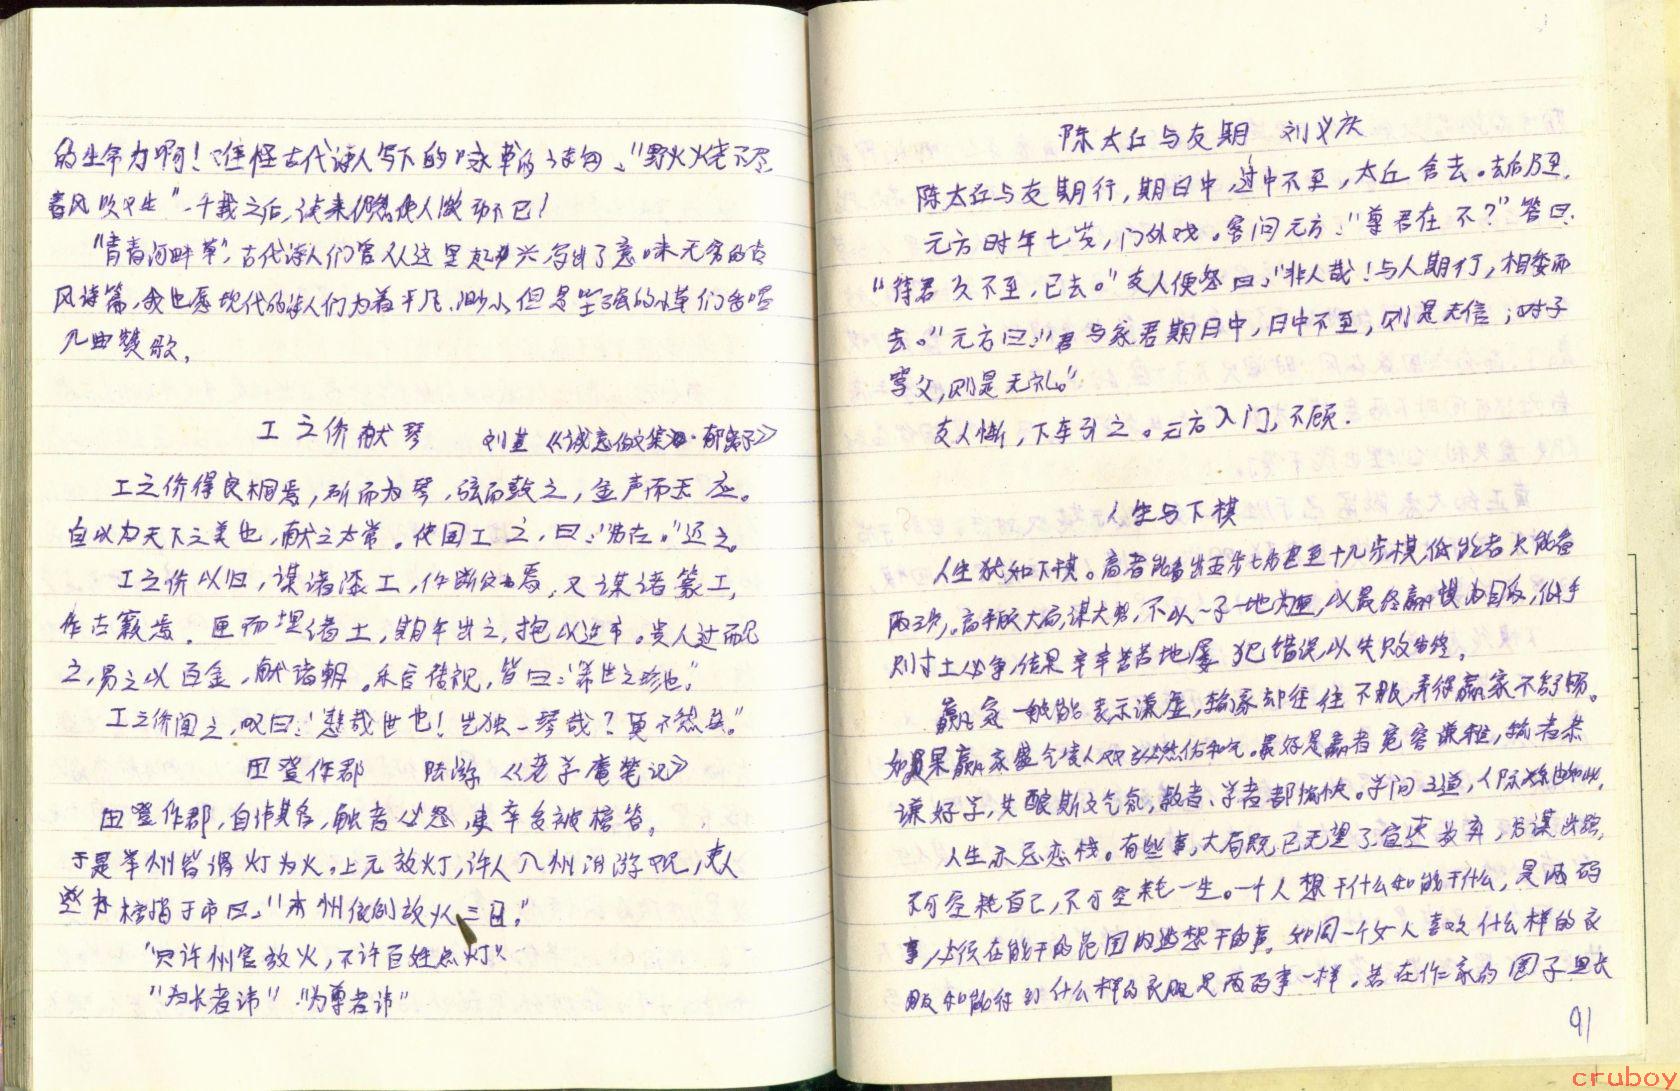 的生命力啊！难怪古代诗人写下的咏草的诗句，“野火烧不尽
春风吹又生”，千载之后，读来仍然使人激动不已！
“青青河畔草”，古代诗人们曾从这里起兴写出了意味无穷的古
风诗篇，我也愿现代的诗人们为着平凡、渺小但是坚强的小草们多唱
几曲赞歌。
工之侨献琴 刘基《诚意伯文集·郁离子》
工之侨得良桐焉，斫而为琴，弦而鼓之，金声而玉应。
自以为天下之美也，献之太常。使国工之，曰：“弗古。”还之。
工之侨以归，谋诸漆工，作断纹焉，又谋诸篆工，
作古窾焉。匣而埋诸土，期年出之，抱以适市。贵人过而见
之，易之以百金，献诸朝。乐官传视，皆曰：“希世之珍也。”
工之侨闻之，叹曰：“悲哉世也！岂独一琴哉？莫不然矣。”
田登作郡 陆游《老学庵笔记》
田登作郡，自讳其名，触者必怒，吏卒多被榜笞。
于是举州皆谓灯为火。上元放灯，许人入州治游观，吏人
遂书榜揭于市曰：“本州依例放火三日。”
“只许州官放火，不许百姓点灯”
“为长者讳”“为尊者讳”
陈太丘与友期 刘义庆
陈太丘与友期行，期日中，过中不至，太丘舍去。去后乃至。
元方时年七岁，门外戏。客问元方：“尊君在不？”答曰：
“待君久不至，已去。”友人便怒曰：“非人哉！与人期行，相委而
去。”元方曰：“君与家君期日中，日中不至，则是无信；对子
骂父，则是无礼。”
友人惭，下车引之。元方入门，不顾。
人生与下棋
人生犹如下棋。高者能看出五步七步甚至十几步棋，低能者只能看
两三步。高手顾大局，谋大势，不以一子一地为重，以最终赢棋为目标，低手
则寸土必争，结果辛辛苦苦地屡犯错误，以失败告终。
赢家一般能表示谦虚，输家却往往不服，弄得赢家不舒畅。
如果赢家盛气凌人，双方必然伤和气。最好是赢者宽容谦和，输者恭
谦好学，共酿斯文气氛，教者、学者都愉快。学问之道，人际关系也如此。
人生亦忌恋栈。有些事，大局既已无望了宜速放弃，另谋出路，
不可空耗自己，不可空耗一生。一个人想干什么和能干什么，是两码
事，必须在能干的范围内做想干的事。如同一个女人喜欢什么样的衣
服和能得到什么样的衣服是两码事一样。若在作家的圈子里长
91
cruboy